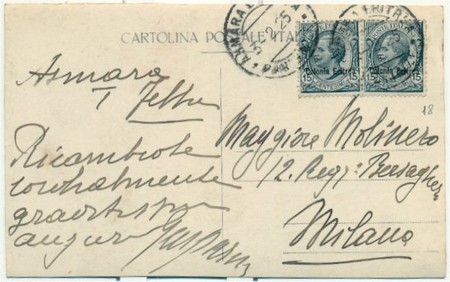 CARTOLINA POSTALE ITAL
ASMARA
2.25
ERITREA
Colonia Eritrea
Colonia Eritrea
15
15
15
18
Asmara
1 Febbr
Ricambiate
cordialmente
graditissimi
auguri
Maggiore Molinero
12. Regg: Bersaglie
Milano